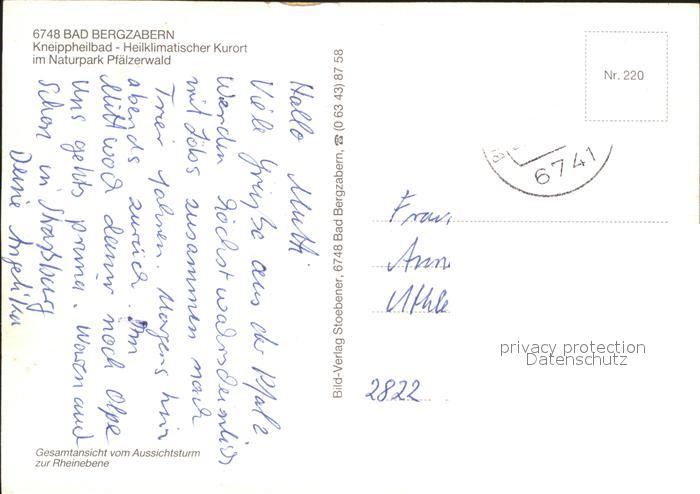 6748 BAD BERGZABERN
Kneippheilbad - Heilklimatischer Kurort
im Naturpark Pfälzerwald
Hallo Mutti
Viele Grüße aus der Pfalz
Werden höchstwahrscheinlich
mit Lolos zusammen nach
Trier fahren. Morgens hin
abends zurück. Am
Mittwoch dann noch Olpe
Uns gehts prima. Waren auch
Schon in Straßburg
Deine Angelika
Gesamtansicht vom Aussichtsturm
zur Rheinebene
Bild-Verlag Stoebener, 6748 Bad Bergzabern, ☎ (0 63 43) 87 58
Nr. 220
6741
Frau
Anne
2822
privacy protection
Datenschutz